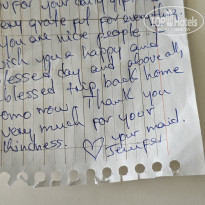 for your daily
very grateful for ever
you are nice people
wish you a happy and
blessed day and above all
blessed trip back home
tomorrow. Thank you
very much for your
kindness. ♡ your maid.